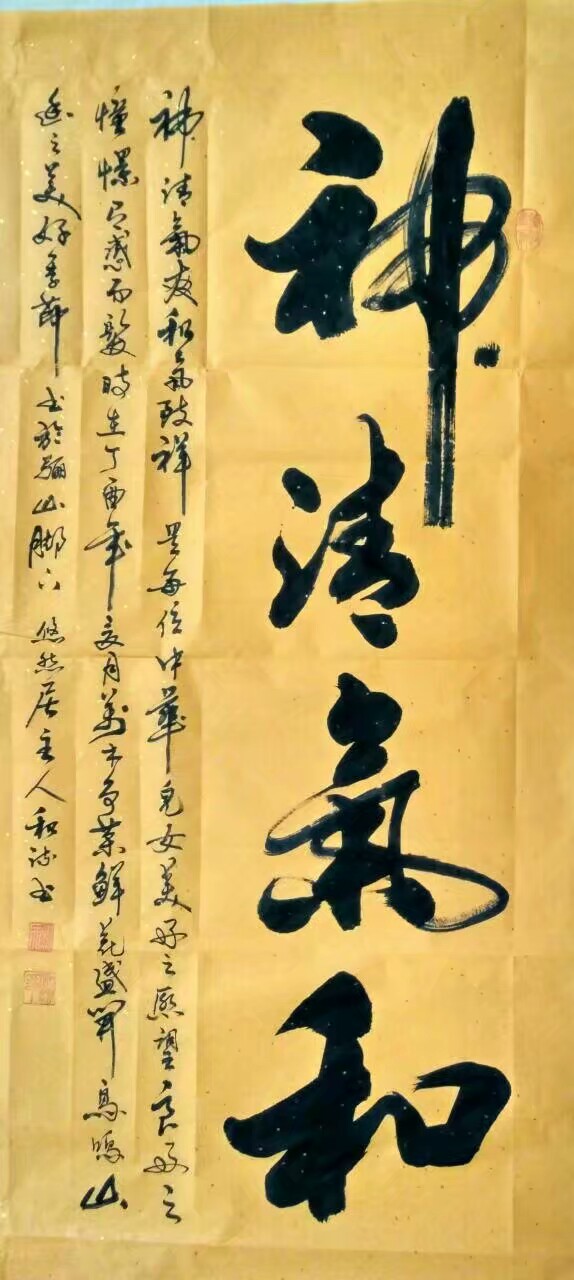 神清氣和
神清氣爽和氣致祥是每位中華兒女美好之願望良好之
憧憬有感而發時在丁酉年亥月萬木爭榮鮮花盛開鳥鳴山
幽之美好季節書於驪山腳下悠然居主人和誌書